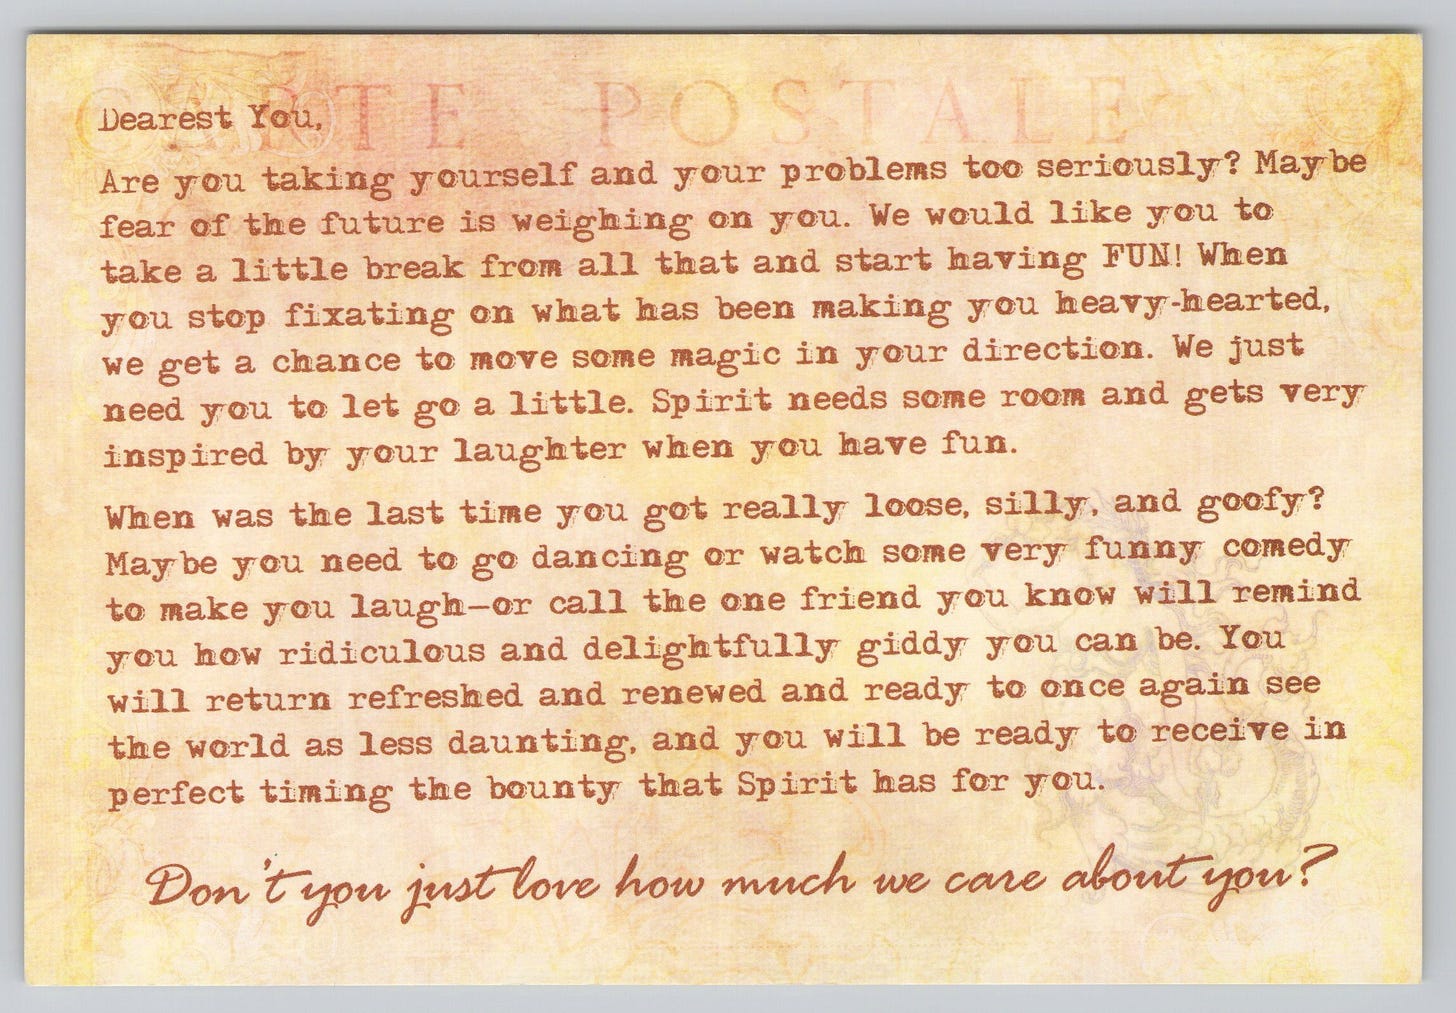 CARTE POSTALE
Dearest You,
Are you taking yourself and your problems too seriously? Maybe
fear of the future is weighing on you. We would like you to
take a little break from all that and start having FUN! When
you stop fixating on what has been making you heavy-hearted,
we get a chance to move some magic in your direction. We just
need you to let go a little. Spirit needs some room and gets very
inspired by your laughter when you have fun.
When was the last time you got really loose, silly, and goofy?
Maybe you need to go dancing or watch some very funny comedy
to make you laugh—or call the one friend you know will remind
you how ridiculous and delightfully giddy you can be. You
will return refreshed and renewed and ready to once again see
the world as less daunting, and you will be ready to receive in
perfect timing the bounty that Spirit has for you.
Don't you just love how much we care about you?